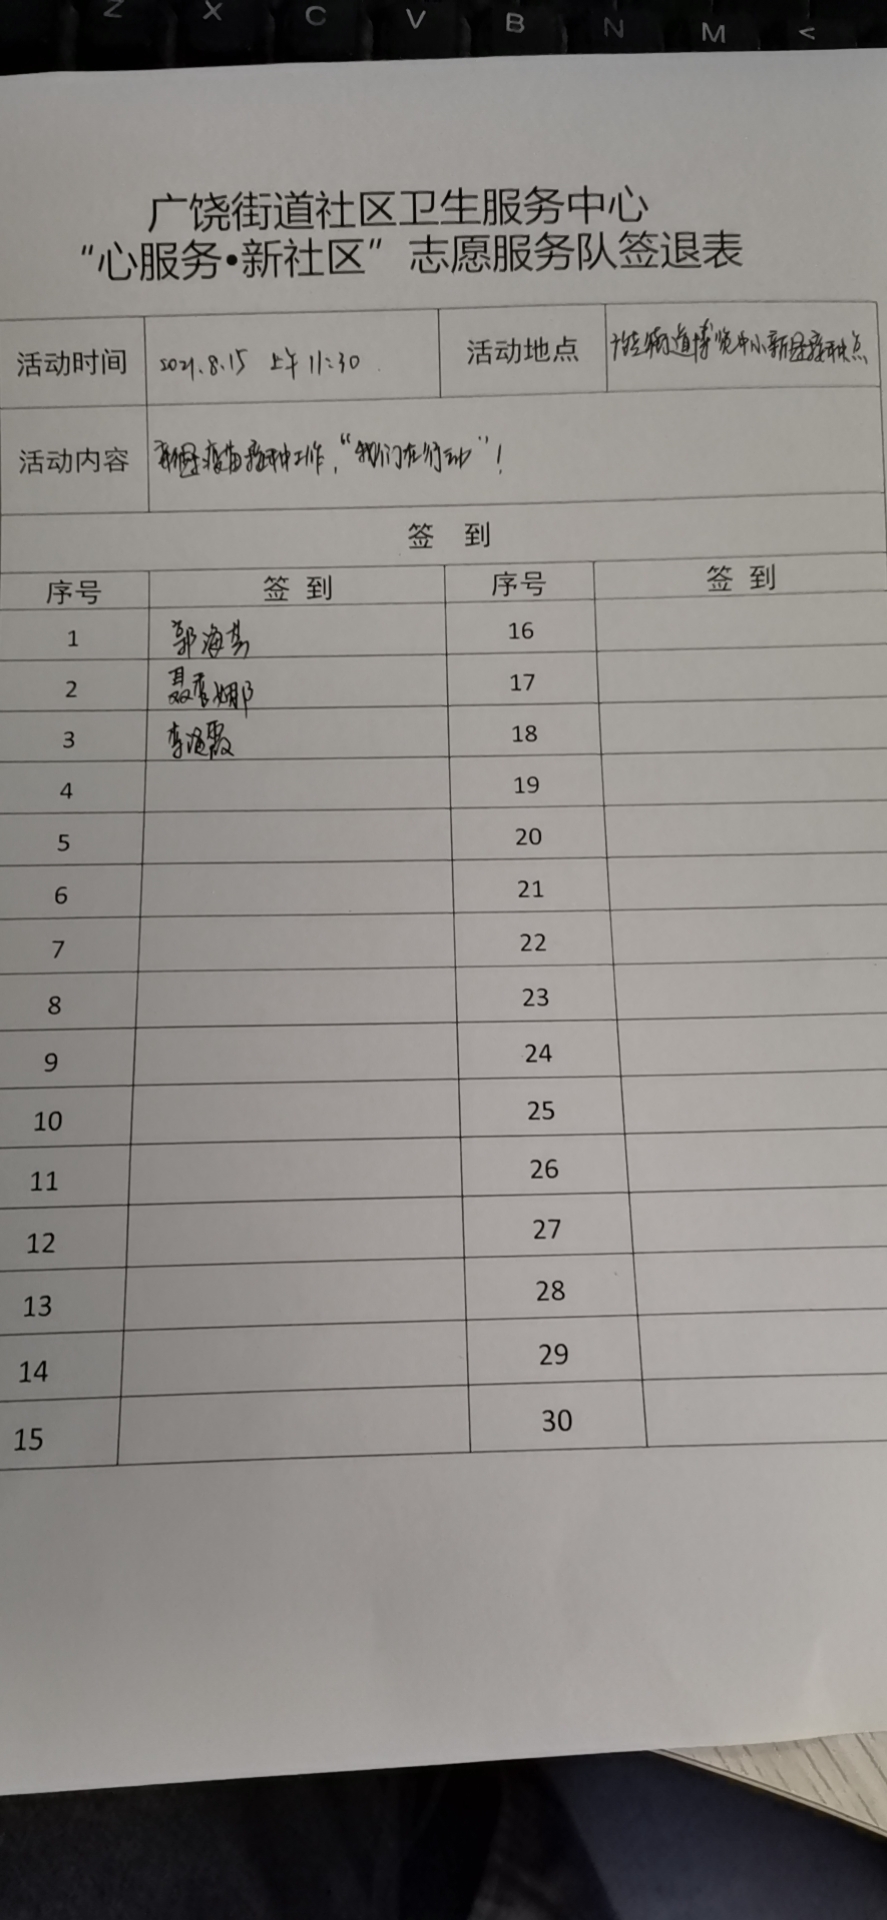 Z X C V B N M <
广饶街道社区卫生服务中心
“心服务•新社区”志愿服务队签退表
活动时间 2021.8.15 上午 11:30 活动地点 广饶街道博览中心新冠接种点
活动内容 新冠疫苗接种工作，“我们在行动”！
签 到
序号 签 到 序号 签 到
1 郭海 16
2 聂秀娜 17
3 李 霞 18
4 19
5 20
6 21
7 22
8 23
9 24
10 25
11 26
12 27
13 28
14 29
15 30